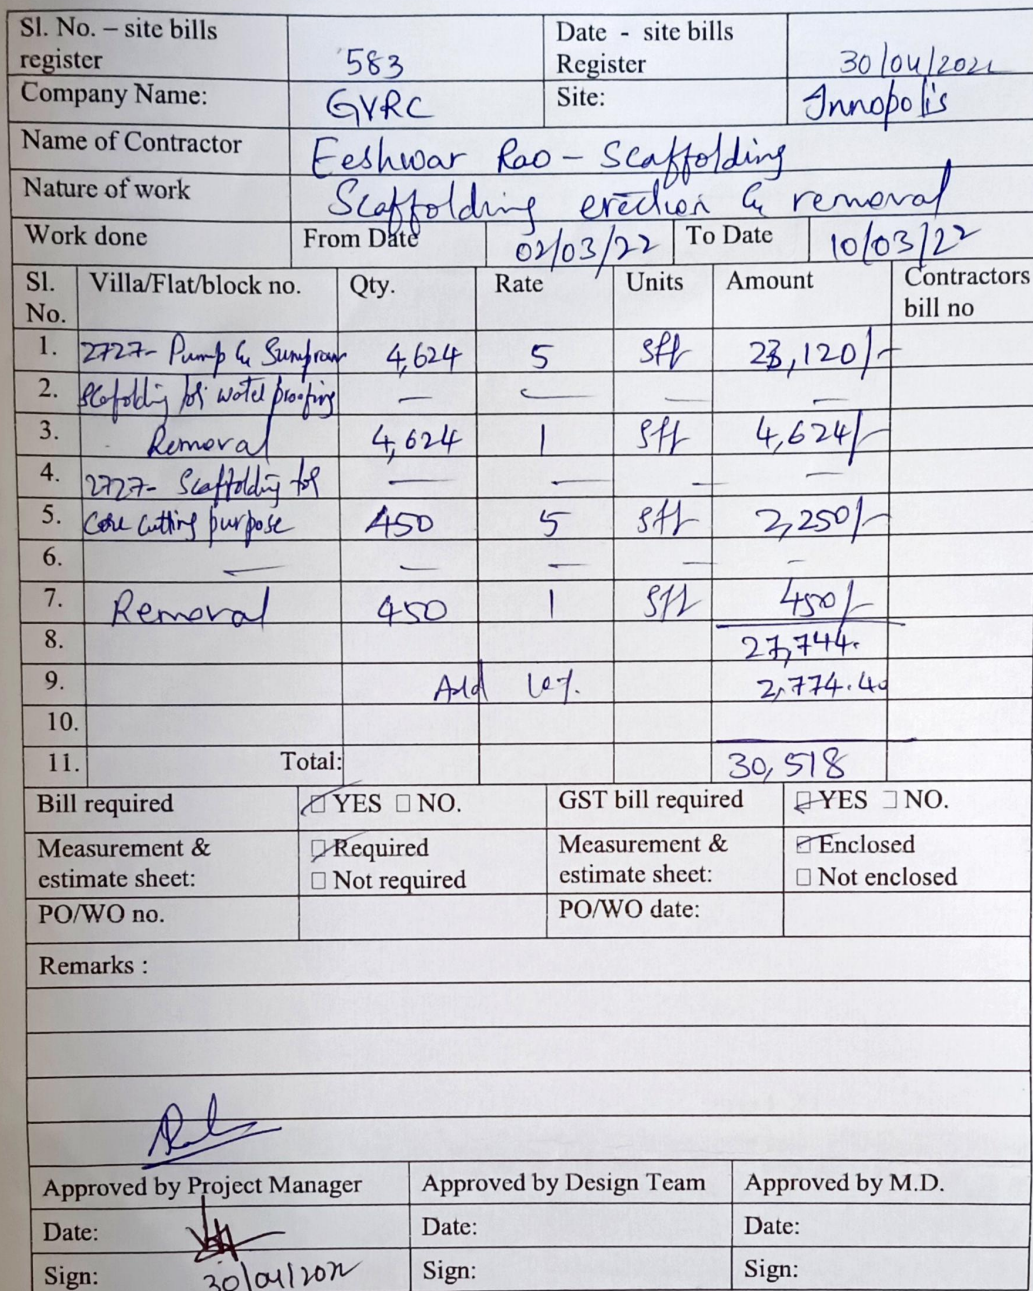 Sl. No. – site bills register 583 Date - site bills Register 30/04/2022
Company Name: GVRC Site: Innopolis
Name of Contractor Eeshwar Rao - Scaffolding
Nature of work Scaffolding erection & removal
Work done From Date 02/03/22 To Date 10/03/22
Sl. No. Villa/Flat/block no. Qty. Rate Units Amount Contractors bill no
1. 2727- Pump & 4,624 5 Sft 23,120/-
2. Scafolding for water proofing — — — —
3. Removal 4,624 1 Sft 4,624/-
4. 2727- Scaffolding for — — — —
5. Core cutting purpose 450 5 Sft 2,250/-
6. — — — — —
7. Removal 450 1 Sft 450/-
8. 27,744.
9. Add 10%. 2,774.40
10.
11. Total: 30,518
Bill required YES NO. GST bill required YES NO.
Measurement & estimate sheet: Required Not required Measurement & estimate sheet: Enclosed Not enclosed
PO/WO no. PO/WO date:
Remarks :
Approved by Project Manager Approved by Design Team Approved by M.D.
Date: Date: Date:
Sign: 30/04/2022 Sign: Sign: